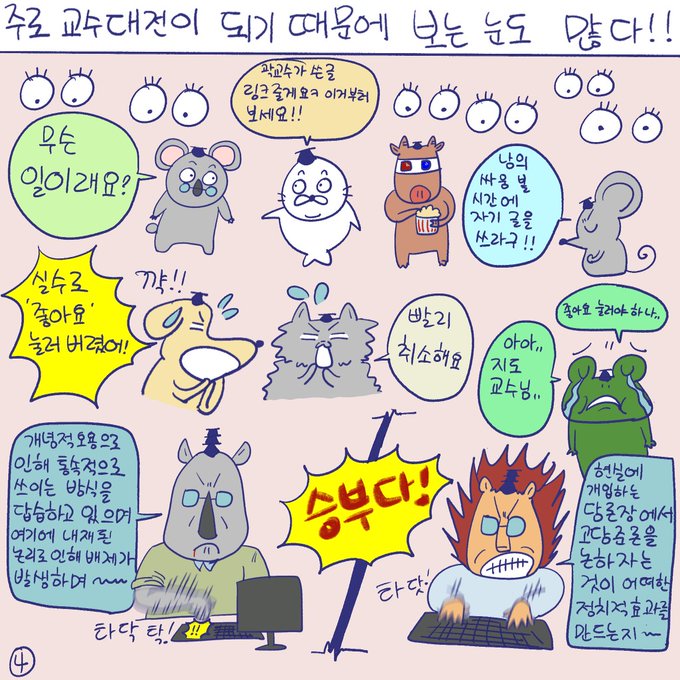 주로 교수대전이 되기 때문에 보는 눈도 많다!!
무슨
일이래요?
곽교수가 쓴글
링크줄게요ㅋ 이거부터
보세요!!
남의
싸움 볼
시간에
자기 글을
쓰라구!!
실수로
'좋아요'
눌러 버렸어!
꺅!!
빨리
취소해요
좋아요 눌러야 하나..
아아..
지도
교수님..
개념적오용으로
인해 통속적으로
쓰이는 방식을
답습하고 있으며
여기에 내재된
논리로 인해 배제가
발생하며 ~~~
타닥 탁!
!!
승부다!
타닷!
현실에
개입하는
담론장에서
고담준론을
논하자는
것이 어떠한
정치적효과를
만드는지~
4